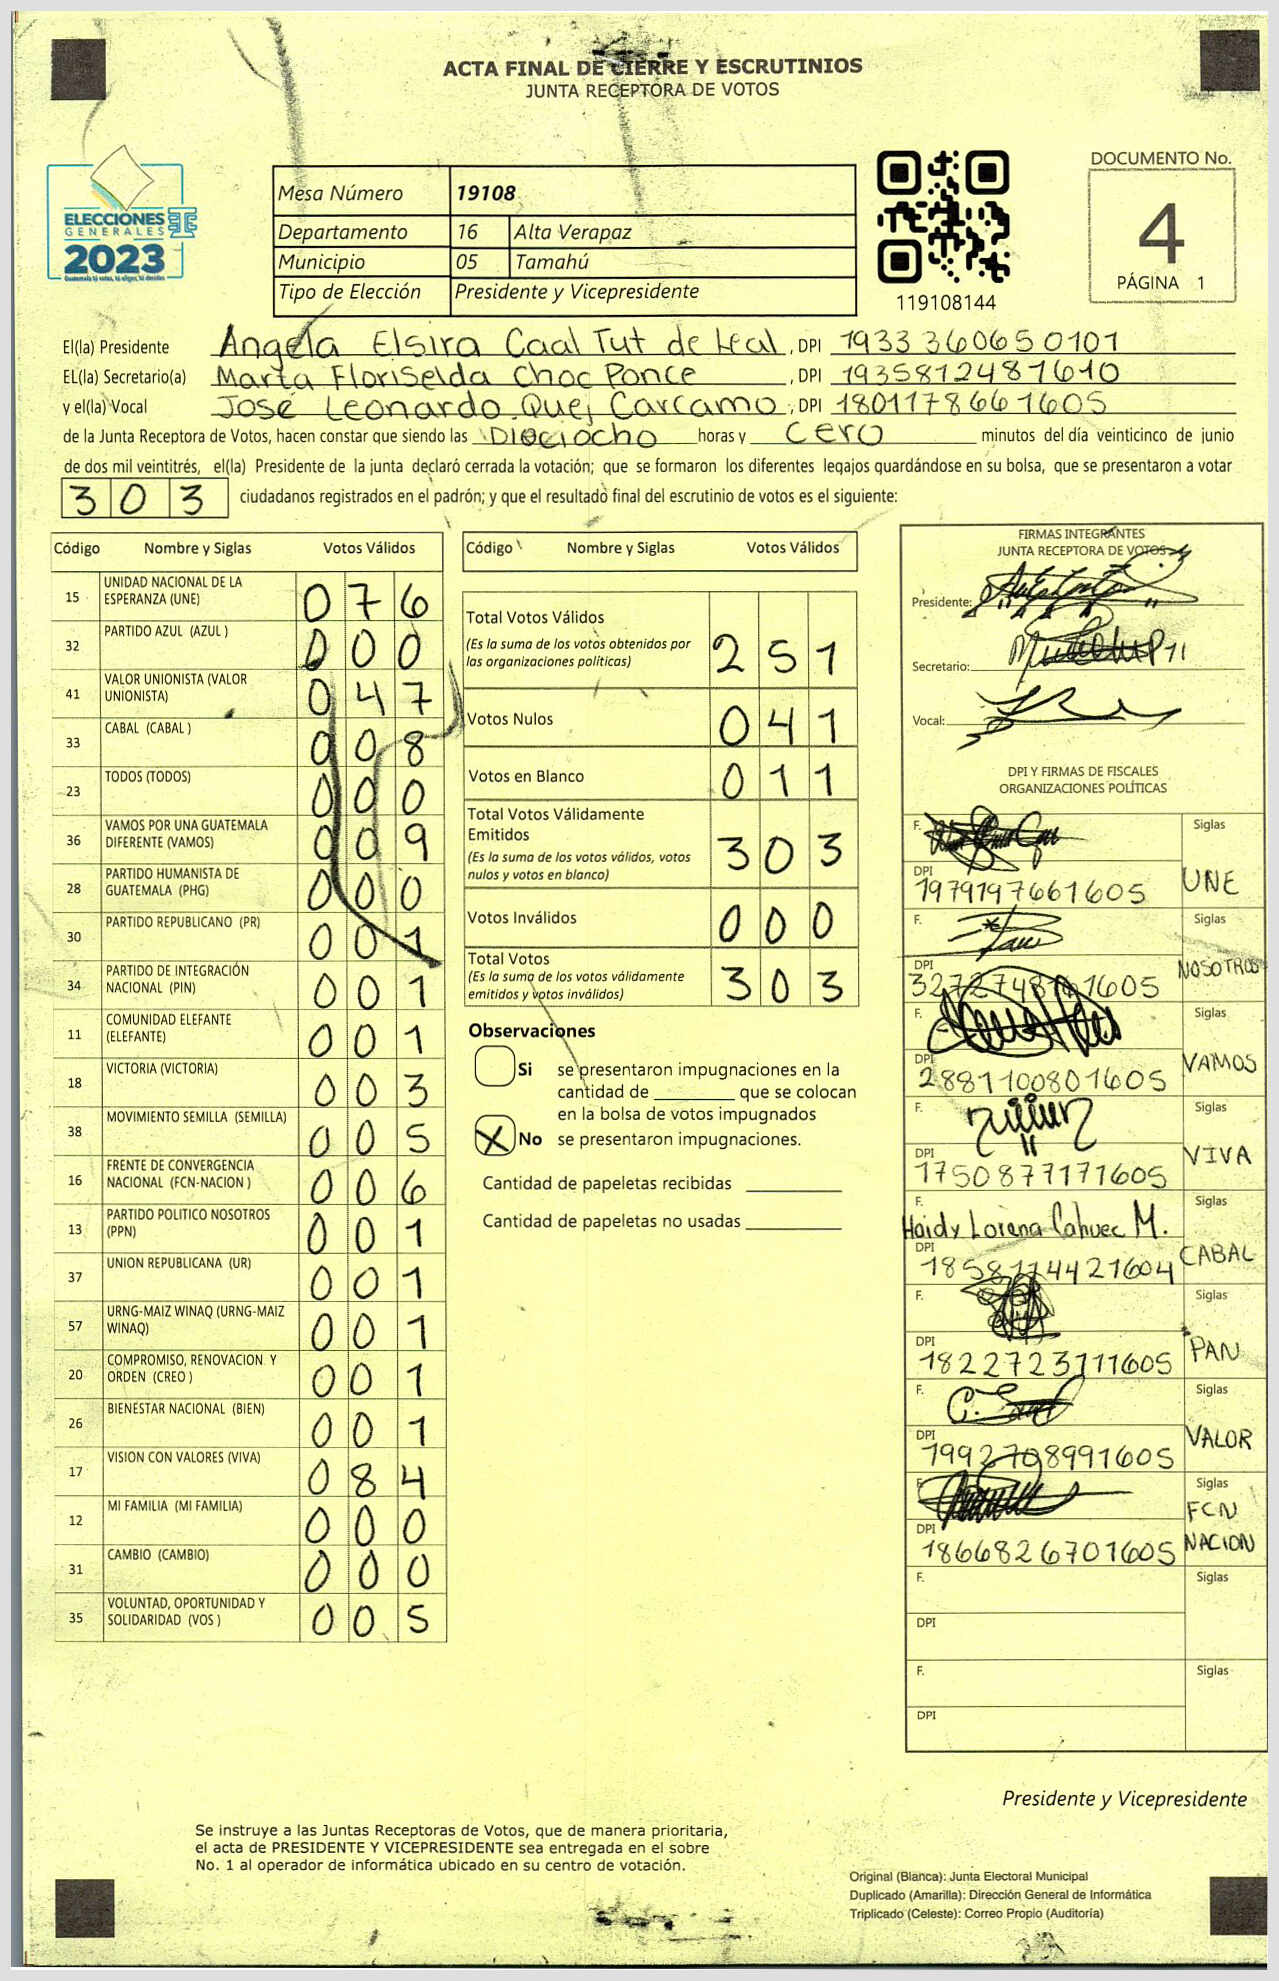 ACTA FINAL DE CIERRE Y ESCRUTINIOS
JUNTA RECEPTORA DE VOTOS
ELECCIONES
GENERALES
2023
Guatemala tú votas, tú eliges, tú decides
Mesa Número 19108
Departamento 16 Alta Verapaz
Municipio 05 Tamahú
Tipo de Elección Presidente y Vicepresidente
119108144
DOCUMENTO No.
4
PÁGINA 1
El(la) Presidente Angela Elsira Caal Tut de Leal, DPI 1933360650101
EL(la) Secretario(a) Marta Floriselda Choc Ponce, DPI 1935812481610
y el(la) Vocal José Leonardo Quej Carcamo, DPI 1801178661605
de la Junta Receptora de Votos, hacen constar que siendo las Dieciocho horas y cero minutos del día veinticinco de junio
de dos mil veintitrés, el(la) Presidente de la junta declaró cerrada la votación; que se formaron los diferentes legajos quardándose en su bolsa, que se presentaron a votar
303 ciudadanos registrados en el padrón; y que el resultado final del escrutinio de votos es el siguiente:
Código Nombre y Siglas Votos Válidos
15 UNIDAD NACIONAL DE LA
ESPERANZA (UNE) 076
32 PARTIDO AZUL (AZUL ) 000
41 VALOR UNIONISTA (VALOR
UNIONISTA) 047
33 CABAL (CABAL ) 008
23 TODOS (TODOS) 000
36 VAMOS POR UNA GUATEMALA
DIFERENTE (VAMOS) 009
28 PARTIDO HUMANISTA DE
GUATEMALA (PHG) 000
30 PARTIDO REPUBLICANO (PR) 001
34 PARTIDO DE INTEGRACIÓN
NACIONAL (PIN) 001
11 COMUNIDAD ELEFANTE
(ELEFANTE) 001
18 VICTORIA (VICTORIA) 003
38 MOVIMIENTO SEMILLA (SEMILLA) 005
16 FRENTE DE CONVERGENCIA
NACIONAL (FCN-NACION ) 006
13 PARTIDO POLITICO NOSOTROS
(PPN) 001
37 UNION REPUBLICANA (UR) 001
57 URNG-MAIZ WINAQ (URNG-MAIZ
WINAQ) 001
20 COMPROMISO, RENOVACION Y
ORDEN (CREO ) 001
26 BIENESTAR NACIONAL (BIEN) 001
17 VISION CON VALORES (VIVA) 084
12 MI FAMILIA (MI FAMILIA) 000
31 CAMBIO (CAMBIO) 000
35 VOLUNTAD, OPORTUNIDAD Y
SOLIDARIDAD (VOS ) 005
Código Nombre y Siglas Votos Válidos
Total Votos Válidos
(Es la suma de los votos obtenidos por
las organizaciones políticas) 251
Votos Nulos 041
Votos en Blanco 011
Total Votos Válidamente
Emitidos
(Es la suma de los votos válidos, votos
nulos y votos en blanco) 303
Votos Inválidos 000
Total Votos
(Es la suma de los votos válidamente
emitidos y votos inválidos) 303
Observaciones
Si se presentaron impugnaciones en la
cantidad de ________ que se colocan
en la bolsa de votos impugnados
X No se presentaron impugnaciones.
Cantidad de papeletas recibidas ________
Cantidad de papeletas no usadas ________
FIRMAS INTEGRANTES
JUNTA RECEPTORA DE VOTOS
Presidente:
Secretario:
Vocal:
DPI Y FIRMAS DE FISCALES
ORGANIZACIONES POLÍTICAS
F. Siglas
DPI 1979197661605 UNE
F. Siglas
DPI NOSOTROS
F. Siglas
DPI 2881100801605 VAMOS
F. Siglas
DPI 1750877171605 VIVA
F. Haidy Lorena Cahuec M. Siglas
DPI 1858114421604 CABAL
F. Siglas
DPI 1822723111605 PAN
F. Siglas
DPI 1992708991605 VALOR
F. Siglas
DPI 1866826701605 FCN NACION
F. Siglas
DPI
F. Siglas
DPI
Presidente y Vicepresidente
Se instruye a las Juntas Receptoras de Votos, que de manera prioritaria,
el acta de PRESIDENTE Y VICEPRESIDENTE sea entregada en el sobre
No. 1 al operador de informática ubicado en su centro de votación.
Original (Blanca): Junta Electoral Municipal
Duplicado (Amarilla): Dirección General de Informática
Triplicado (Celeste): Correo Propio (Auditoría)